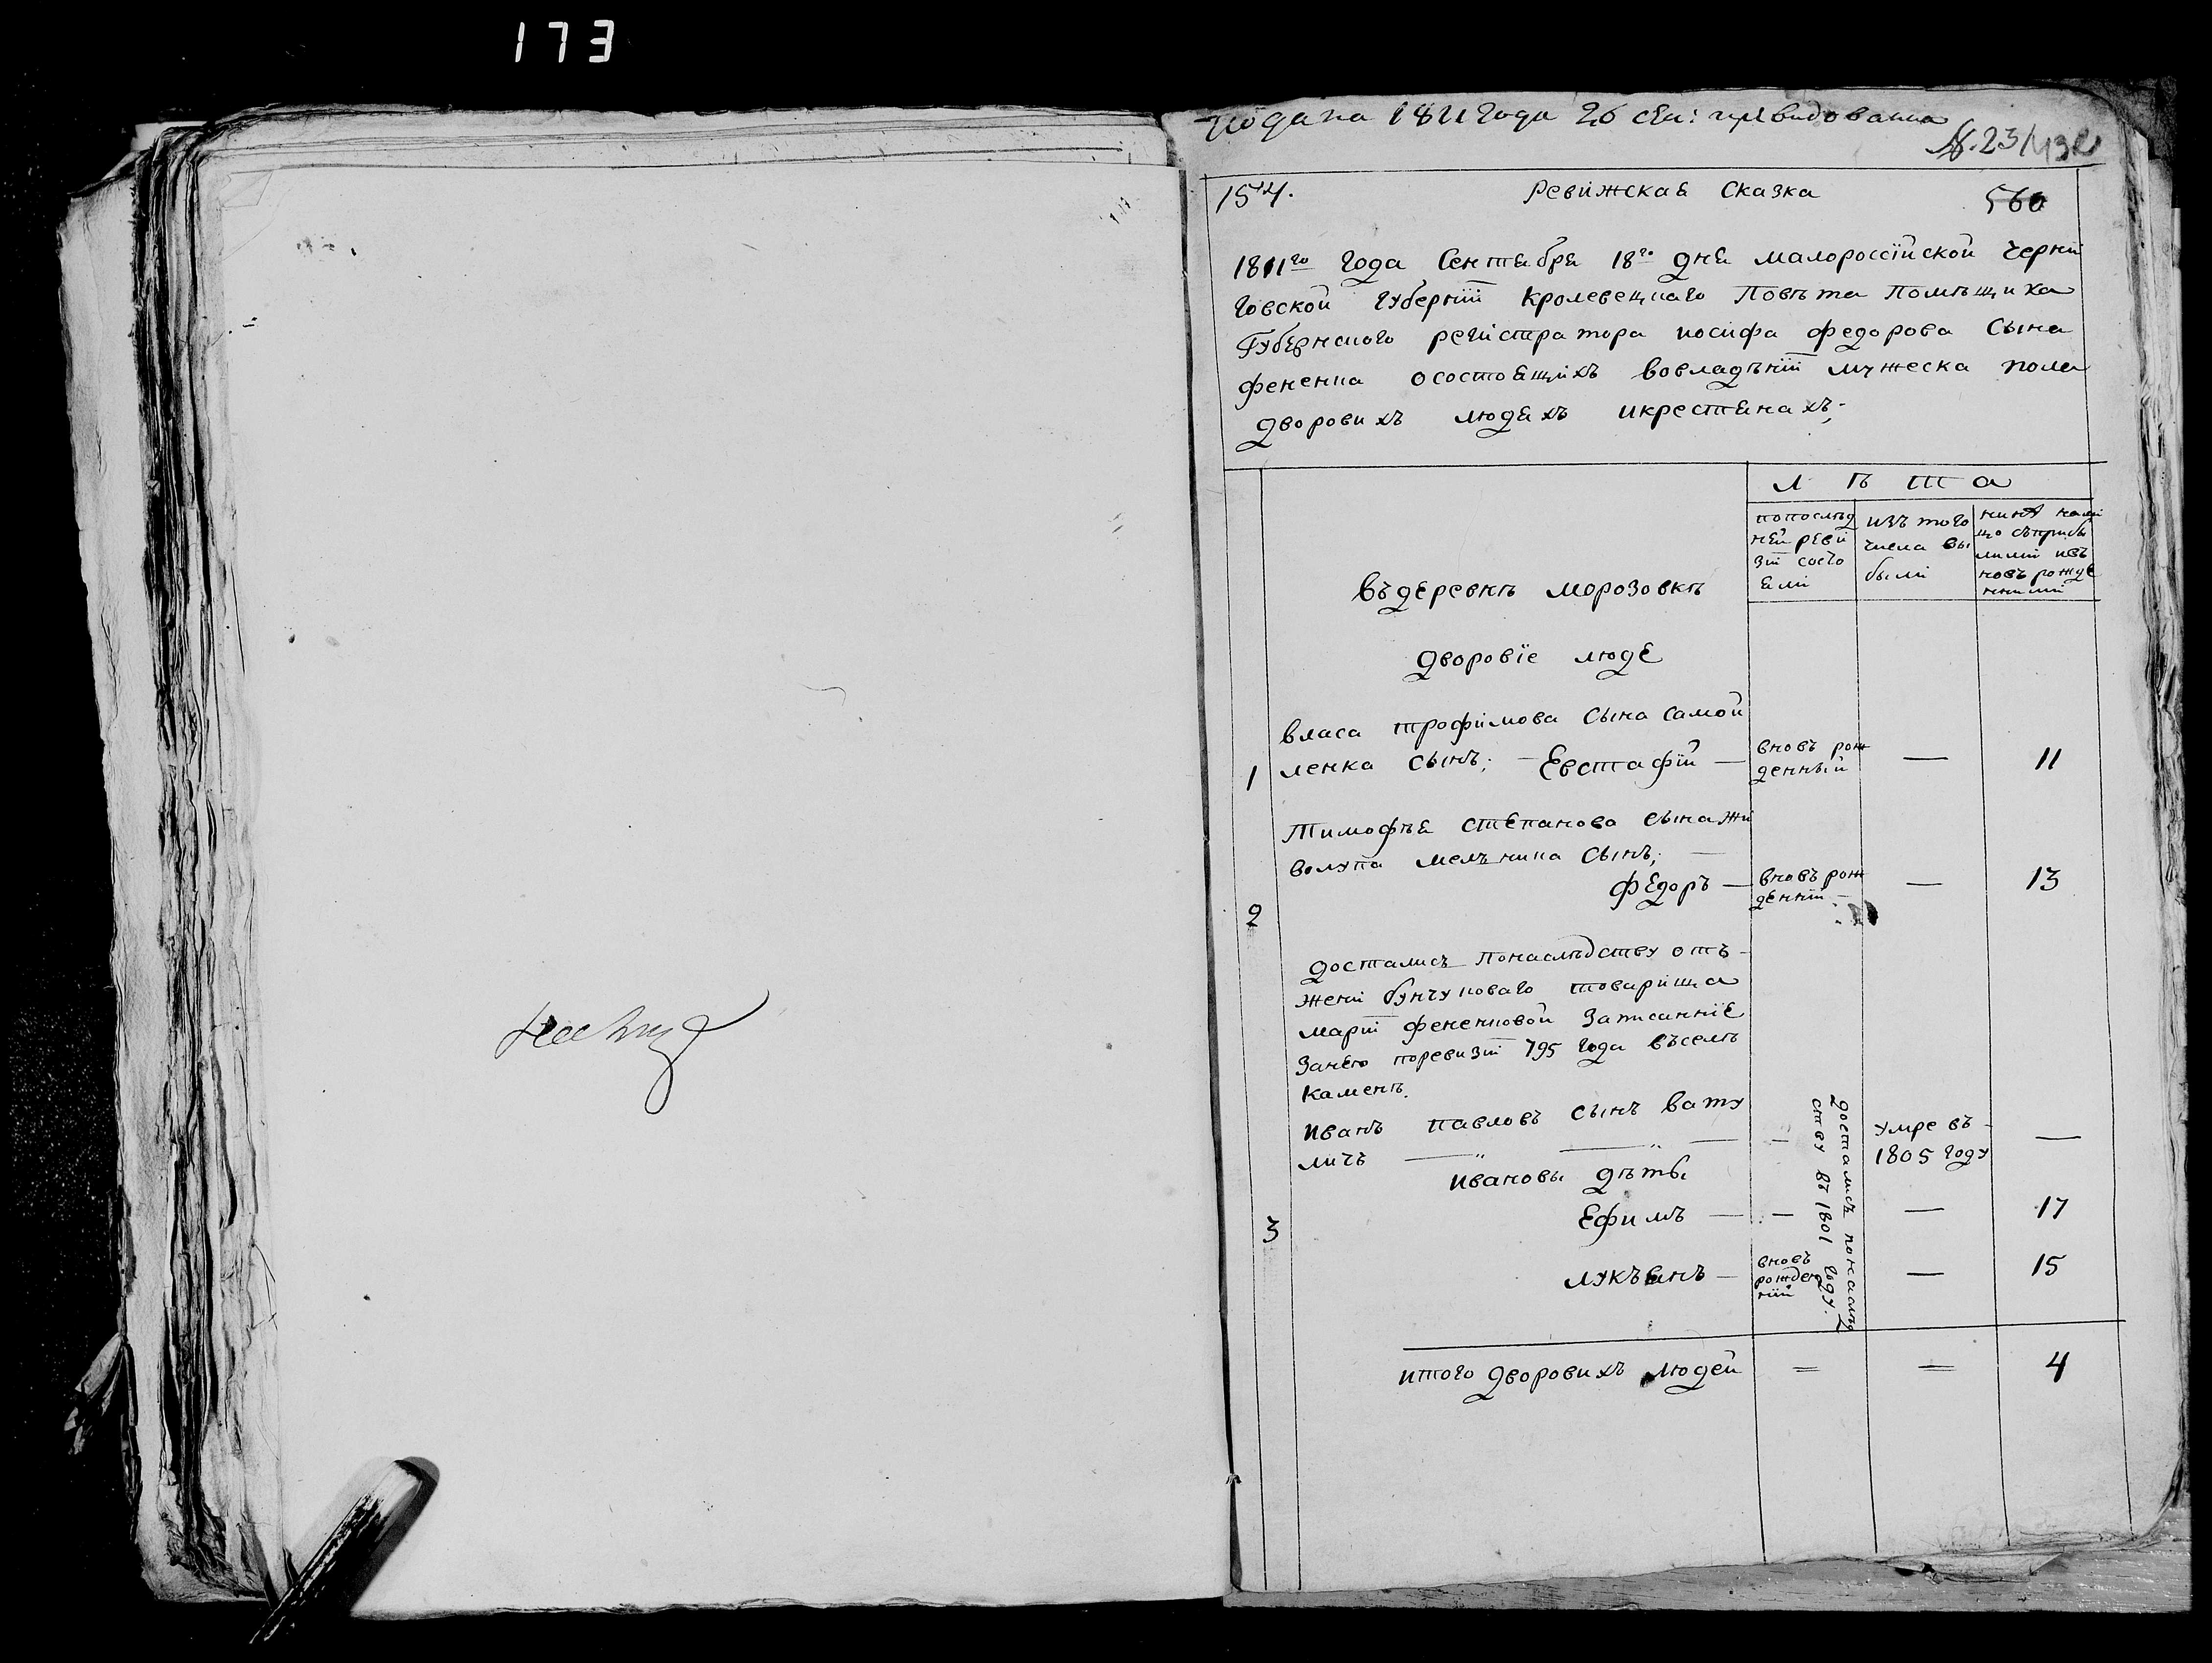 173
Подана 1811 года 26 сен: по ревидования
№. 23/
154. Ревижская Сказка 560
1811го года Сентября 18го дня малороссїйской Черни
говской губернїй Кролевецкаго Повѣта Помѣщика
Губернского регистратора иосифа федорова Сына
фененка осостоящихъ вовладѣнїй мужеска пола
дворовихъ людяхъ икрестянахъ;
Л ѣ т а
попослѣд
ней реви
зїй состо
яли
изъ того
числа вы
были
нинѣ нали
цо съприбы
лими изъ
новъ рожде
нними
Въдеревнѣ морозовкѣ
дворовїе люде
власа трофимова Сына Самой
1 ленка сынъ; — Евстафїй — вновъ рож
денный — 11
Тимофѣя степанова сына жи
волупа мелъника сынъ; —
2 федоръ — вновъ рож
деннїй — — 13
досталисъ понаслѣдству отъ
жени бунчуковаго товарища
марїй фененковой записаннїе
занею поревизїй 795 года въселѣ
каменѣ.
Иванъ павловъ сынъ вату
личъ — — — — умре въ
1805 году —
досталисъ понаслѣд
ству въ 1801 году.
ивановы дѣты
3 Ефимъ — — — 17
лукъянъ — вновъ
рожден
нїй — 15
итого дворовихъ людей = = 4